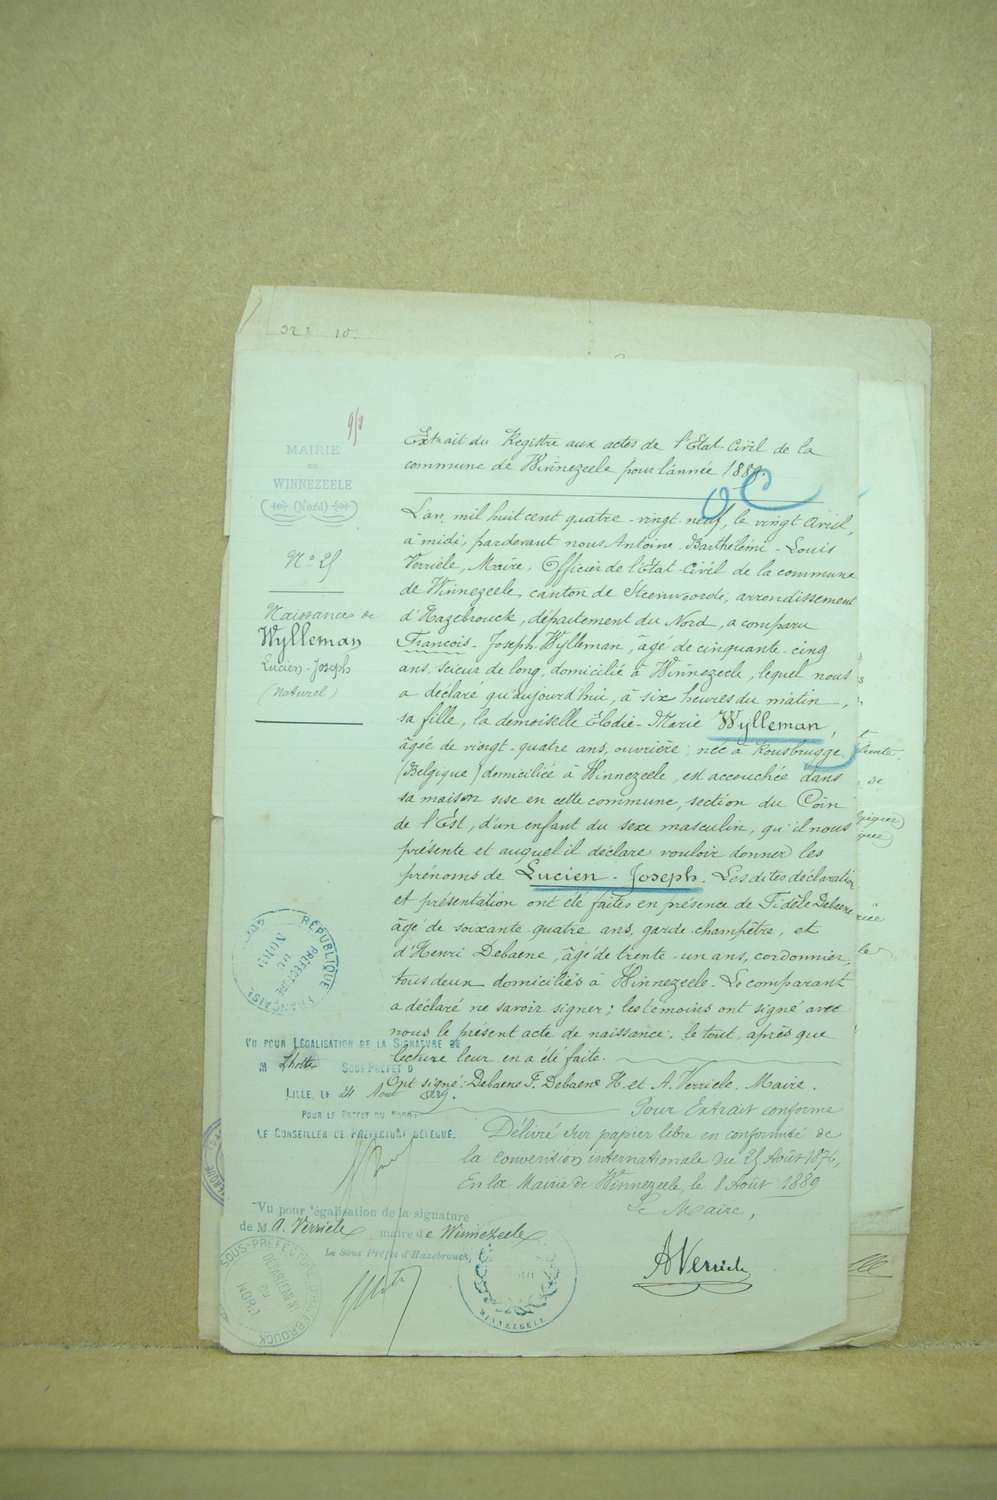 MAIRIE
DE
WINNEZEELE
(Nord)
Nº 25
Naissance de
Wylleman
Lucien-Joseph
(Naturel)
Extrait du Registre aux actes de l'Etat-Civil de la
commune de Winnezeele pour l'année 1889.
L'an mil huit cent quatre-vingt-neuf, le vingt Avril,
à midi, pardevant nous Antoine-Barthélémi-Louis
Verriele, Maire, Officier de l'Etat-Civil de la commune
de Winnezeele, canton de Steenvoorde, arrondissement
d'Hazebrouck, département du Nord, a comparu
François-Joseph Wylleman, âgé de cinquante-cinq
ans, scieur de long, domicilié à Winnezeele, lequel nous
a déclaré qu'aujourd'hui, à six heures du matin,
sa fille, la demoiselle Elodie-Marie Wylleman,
âgée de vingt-quatre ans, ouvrière, née à Rousbrugge
(Belgique) domiciliée à Winnezeele, est accouchée dans
sa maison sise en cette commune, section du Coin
de l'Est, d'un enfant du sexe masculin, qu'il nous
présente et auquel il déclare vouloir donner les
prénoms de Lucien-Joseph. Les dites déclaration
et présentation ont été faites en présence de Fidèle Debaene
âgé de soixante quatre ans, garde-champêtre, et
d'Henri Debaene, âgé de trente-un ans, cordonnier,
tous deux domiciliés à Winnezeele. Le comparant
a déclaré ne savoir signer; les témoins ont signé avec
nous le présent acte de naissance, le tout après que
lecture leur en a été faite.
Ont signé: Debaene F. Debaene H. et A. Verriele. Maire.
Pour Extrait conforme
Délivré sur papier libre en conformité de
la convention internationale du 25 Août 1876,
En la Mairie de Winnezeele, le 8 Août 1889
Le Maire,
A Verriele
RÉPUBLIQUE FRANÇAISE
PRÉFECTURE DU NORD
VU POUR LÉGALISATION DE LA SIGNATURE DE
M SOUS-PRÉFET D
LILLE, LE 24 Août
POUR LE PRÉFET DU NORD
LE CONSEILLER DE PRÉFECTURE DÉLÉGUÉ,
Vu pour légalisation de la signature
de M. A. Verriele maire de Winnezeele
Le Sous-Préfet d'Hazebrouck,
WINNEZEELE